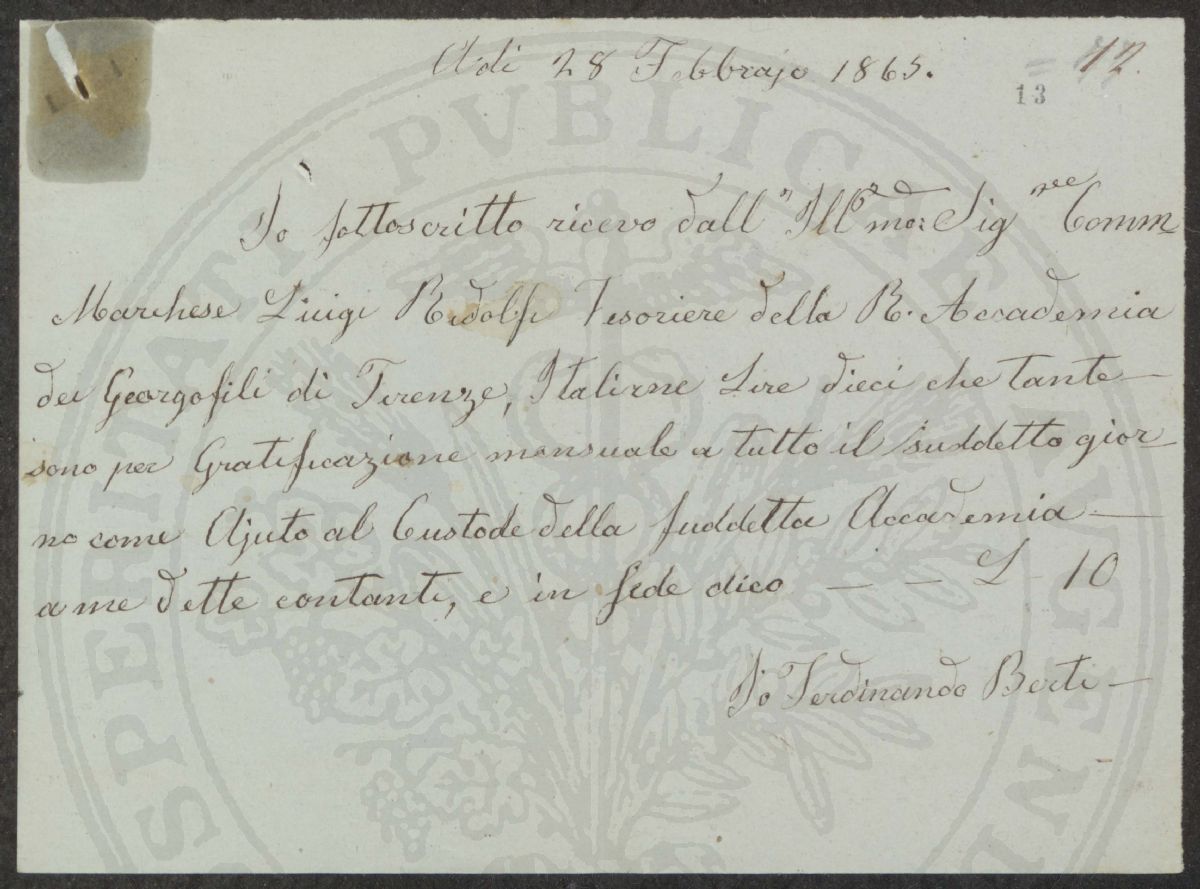 Adi 28 Febbrajo 1865.
12.
13
Io sottoscritto ricevo dall' Ill.mo: Sig.re Comm
Marchese Luigi Ridolfi Tesoriere della R. Accademia
dei Georgofili di Firenze, Italiane Lire dieci che tante
sono per Gratificazione mensuale a tutto il suddetto gior
no come Ajuto al Custode della suddetta Accademia
a me dette contanti, e in fede dico — — — L - 10
Io Ferdinando Berti
PROSPERITATI PUBLICAE AUGENDAE